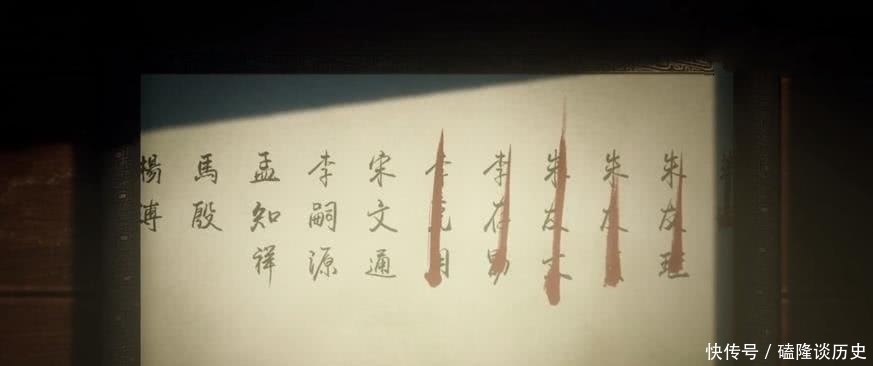 朱友珪
朱友
朱友文
李存勗
李克用
宋文通
李嗣源
孟知祥
馬殷
楊溥
快传号 / 磕隆谈历史